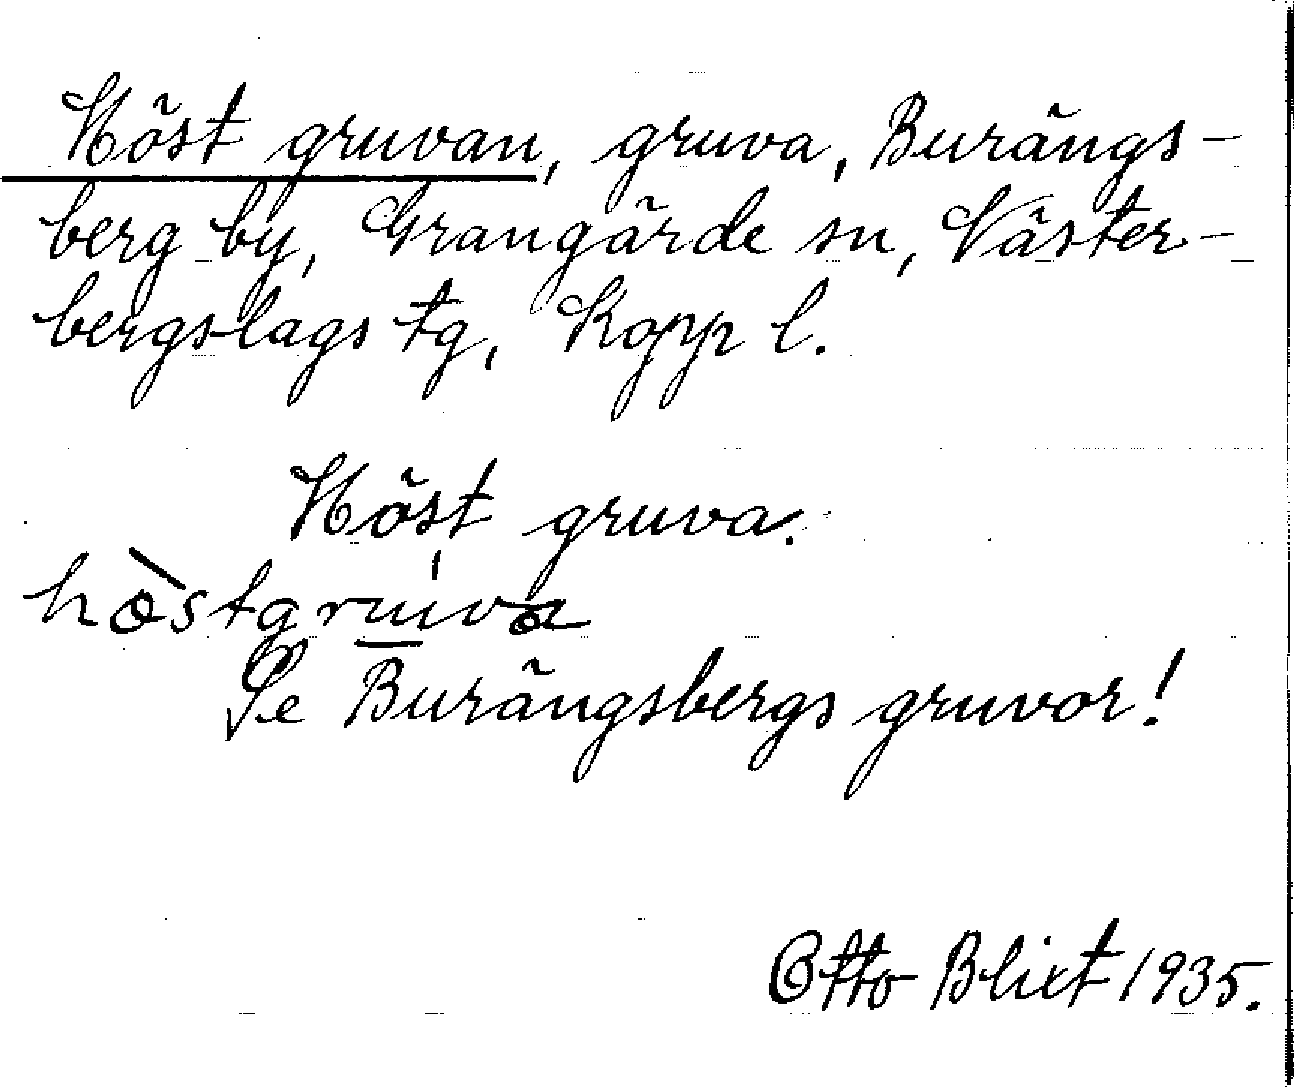 Höst gruvan, gruva, Burängs-
berg by, Grangärde sn, Väster-
bergslags tg, Kopp l.
Höst gruva.
hòstgruva
Se Burängsbergs gruvor!
Otto Blixt 1935.